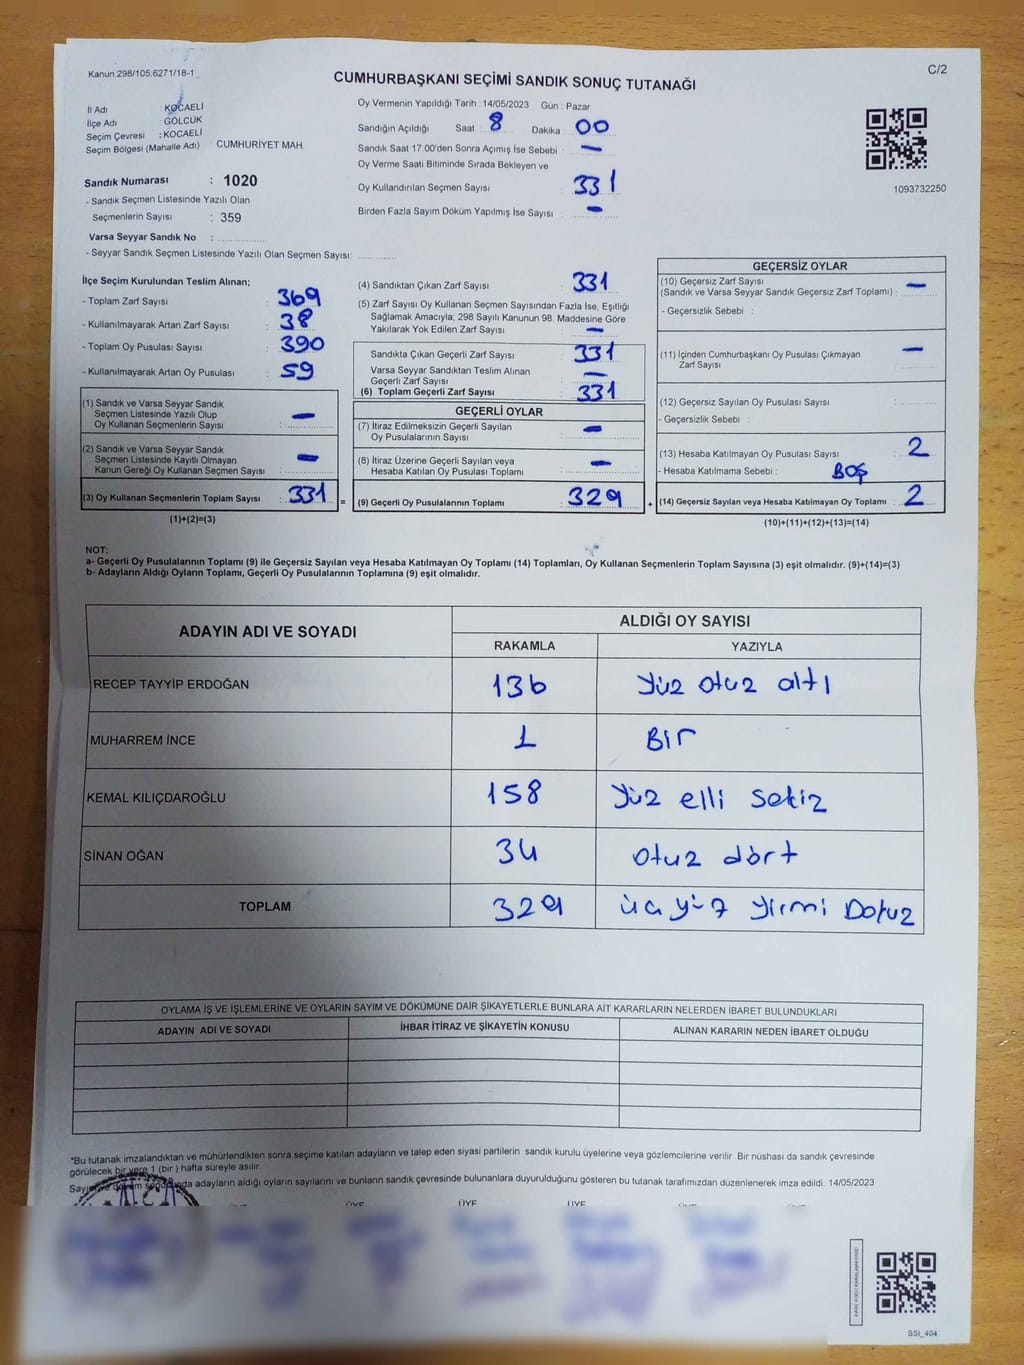 Kanun.298/105;6271/18-1
C/2
CUMHURBAŞKANI SEÇİMİ SANDIK SONUÇ TUTANAĞI
İl Adı : KOCAELİ
İlçe Adı : GÖLCÜK
Seçim Çevresi : KOCAELİ
Seçim Bölgesi (Mahalle Adı) CUMHURİYET MAH.
Sandık Numarası : 1020
- Sandık Seçmen Listesinde Yazılı Olan
Seçmenlerin Sayısı : 359
Varsa Seyyar Sandık No :
- Seyyar Sandık Seçmen Listesinde Yazılı Olan Seçmen Sayısı:
Oy Vermenin Yapıldığı Tarih : 14/05/2023 Gün : Pazar
Sandığın Açıldığı Saat : 8 Dakika : 00
Sandık Saat 17:00'den Sonra Açımış İse Sebebi : —
Oy Verme Saati Bitiminde Sırada Bekleyen ve
Oy Kullandırılan Seçmen Sayısı : 331
Birden Fazla Sayım Döküm Yapılmış İse Sayısı : —
1093732250
İlçe Seçim Kurulundan Teslim Alınan;
- Toplam Zarf Sayısı : 369
- Kullanılmayarak Artan Zarf Sayısı : 38
- Toplam Oy Pusulası Sayısı : 390
- Kullanılmayarak Artan Oy Pusulası : 59
(1) Sandık ve Varsa Seyyar Sandık
Seçmen Listesinde Yazılı Olup
Oy Kullanan Seçmenlerin Sayısı : —
(2) Sandık ve Varsa Seyyar Sandık
Seçmen Listesinde Kayıtlı Olmayan
Kanun Gereği Oy Kullanan Seçmen Sayısı : —
(3) Oy Kullanan Seçmenlerin Toplam Sayısı : 331 =
(1)+(2)=(3)
(4) Sandıktan Çıkan Zarf Sayısı : 331
(5) Zarf Sayısı Oy Kullanan Seçmen Sayısından Fazla İse, Eşitliği
Sağlamak Amacıyla; 298 Sayılı Kanunun 98. Maddesine Göre
Yakılarak Yok Edilen Zarf Sayısı : —
Sandıkta Çıkan Geçerli Zarf Sayısı : 331
Varsa Seyyar Sandıktan Teslim Alınan
Geçerli Zarf Sayısı : —
(6) Toplam Geçerli Zarf Sayısı : 331
GEÇERLİ OYLAR
(7) İtiraz Edilmeksizin Geçerli Sayılan
Oy Pusulalarının Sayısı : —
(8) İtiraz Üzerine Geçerli Sayılan veya
Hesaba Katılan Oy Pusulası Toplamı : —
(9) Geçerli Oy Pusulalarının Toplamı : 329 +
GEÇERSİZ OYLAR
(10) Geçersiz Zarf Sayısı
(Sandık ve Varsa Seyyar Sandık Geçersiz Zarf Toplamı) : —
- Geçersizlik Sebebi :
(11) İçinden Cumhurbaşkanı Oy Pusulası Çıkmayan
Zarf Sayısı : —
(12) Geçersiz Sayılan Oy Pusulası Sayısı :
- Geçersizlik Sebebi :
(13) Hesaba Katılmayan Oy Pusulası Sayısı : 2
- Hesaba Katılmama Sebebi : BOŞ
(14) Geçersiz Sayılan veya Hesaba Katılmayan Oy Toplamı : 2
(10)+(11)+(12)+(13)=(14)
NOT:
a- Geçerli Oy Pusulalarının Toplamı (9) ile Geçersiz Sayılan veya Hesaba Katılmayan Oy Toplamı (14) Toplamları, Oy Kullanan Seçmenlerin Toplam Sayısına (3) eşit olmalıdır. (9)+(14)=(3)
b- Adayların Aldığı Oyların Toplamı, Geçerli Oy Pusulalarının Toplamına (9) eşit olmalıdır.
ADAYIN ADI VE SOYADI
ALDIĞI OY SAYISI
RAKAMLA YAZIYLA
RECEP TAYYİP ERDOĞAN 136 Yüz otuz altı
MUHARREM İNCE 1 Bir
KEMAL KILIÇDAROĞLU 158 Yüz elli sekiz
SİNAN OĞAN 34 otuz dört
TOPLAM 329 üçyüz yirmi Dokuz
OYLAMA İŞ VE İŞLEMLERİNE VE OYLARIN SAYIM VE DÖKÜMÜNE DAİR ŞİKAYETLERLE BUNLARA AİT KARARLARIN NELERDEN İBARET BULUNDUKLARI
ADAYIN ADI VE SOYADI İHBAR İTİRAZ VE ŞİKAYETİN KONUSU ALINAN KARARIN NEDEN İBARET OLDUĞU
*Bu tutanak imzalandıktan ve mühürlendikten sonra seçime katılan adayların ve talep eden siyasi partilerin sandık kurulu üyelerine veya gözlemcilerine verilir. Bir nüshası da sandık çevresinde
görülecek bir yere 1 (bir ) hafta süreyle asılır.
adayların aldığı oyların sayılarını ve bunların sandık çevresinde bulunanlara duyurulduğunu gösteren bu tutanak tarafımızdan düzenlenerek imza edildi. 14/05/2023
ÜYE ÜYE ÜYE ÜYE ÜYE
SSI_404